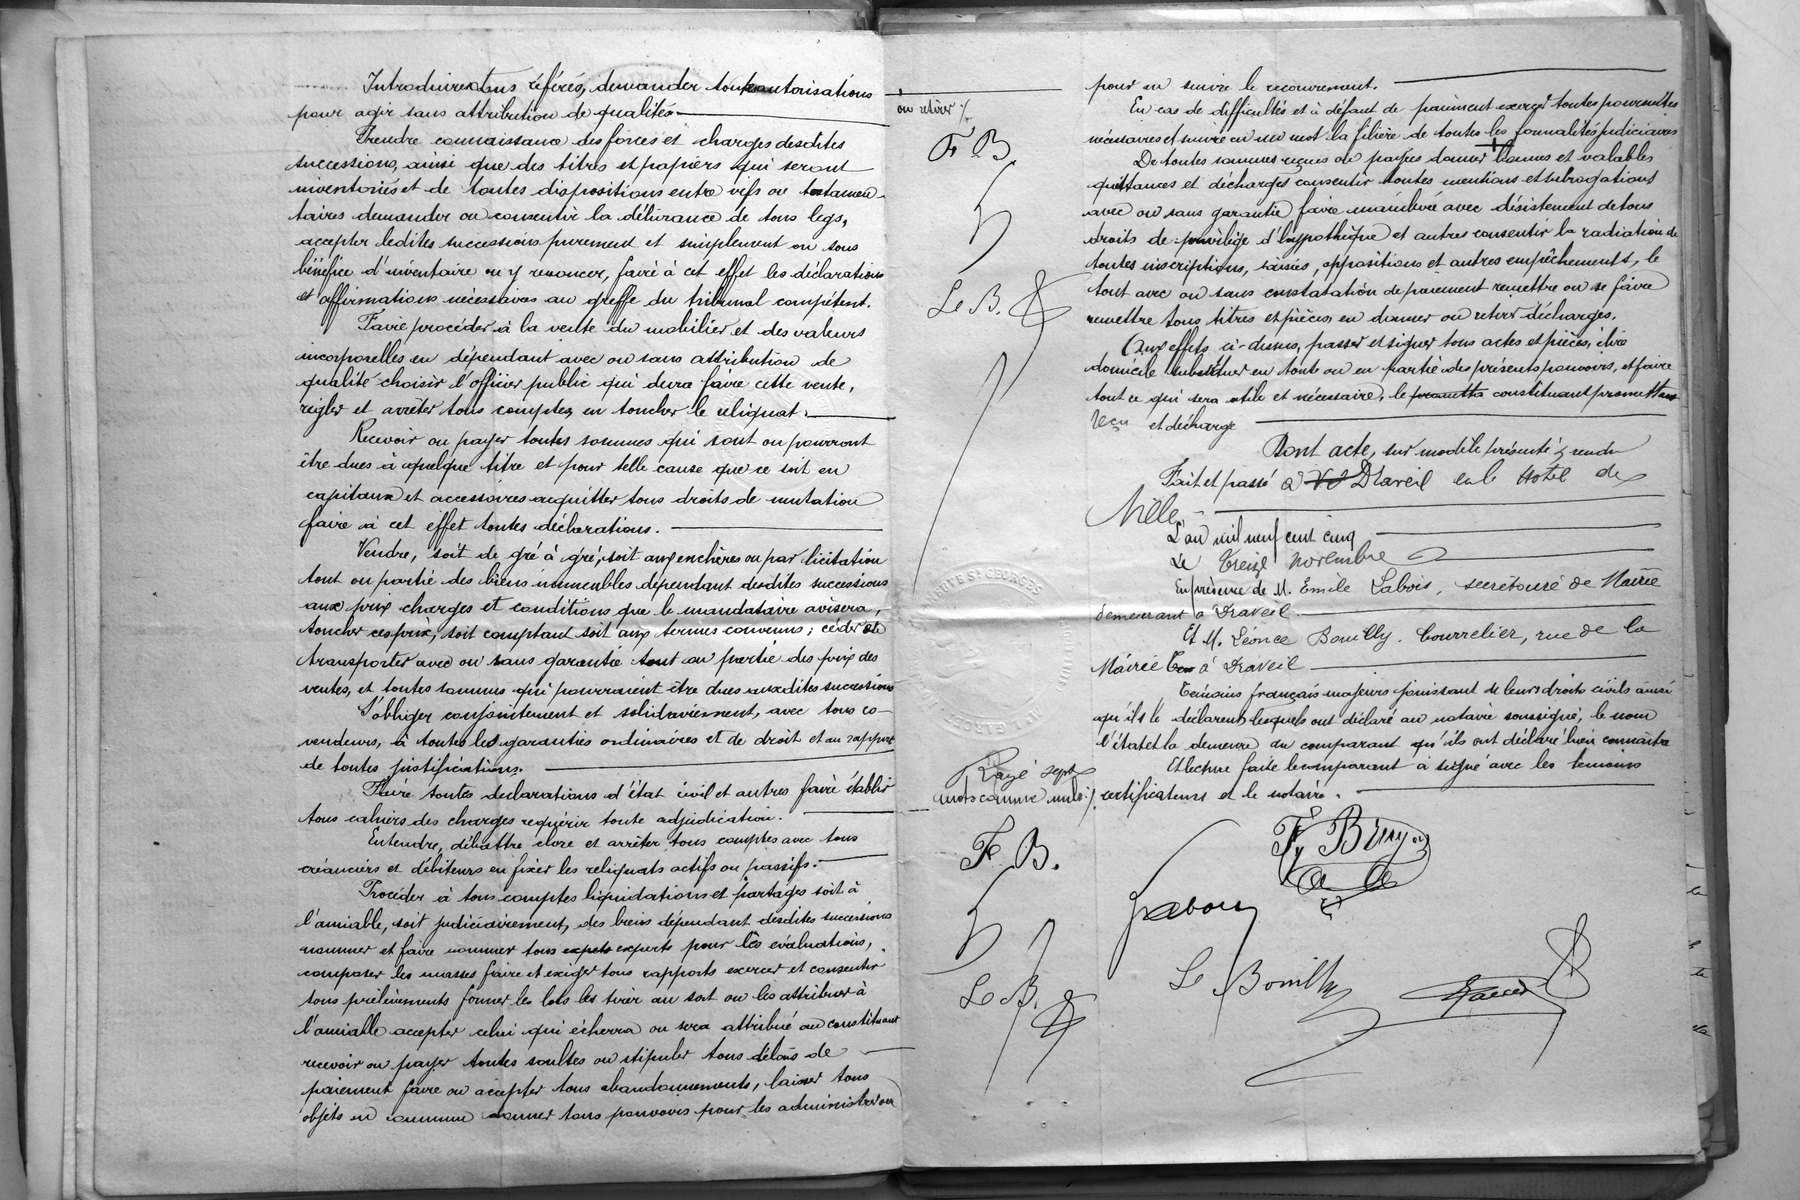 Introduire tous référés, demander toutes autorisations
pour agir sans attribution de qualités
Prendre connaissance des forces et charges desdites
successions, ainsi que des titres et papiers qui seront
inventoriés et de toutes dispositions entre vifs ou testamen-
taires demander ou consentir la délivrance de tous legs,
accepter lesdites successions purement et simplement ou sous
bénéfice d'inventaire ou y renoncer, faire à cet effet les déclarations
et affirmations nécessaires au greffe du tribunal compétent.
Faire procéder à la vente du mobilier et des valeurs
incorporelles en dépendant avec ou sans attribution de
qualité choisir l'officier public qui devra faire cette vente,
régler et arrêter tous comptes en toucher le reliquat.
Recevoir ou payer toutes sommes qui sont ou pourront
être dues à quelque titre et pour telle cause que ce soit en
capitaux et accessoires acquitter tous droits de mutation
faire à cet effet toutes déclarations.
Vendre, soit de gré à gré, soit aux enchères ou par licitation
tout ou partie des biens immeubles dépendant desdites successions
aux prix charges et conditions que le mandataire avisera,
toucher ces prix, soit comptant soit aux termes convenus; céder et
transporter avec ou sans garantie tout ou partie des prix des
ventes, et toutes sommes qui pourraient être dues auxdites successions
S'obliger conjointement et solidairement, avec tous co-
vendeurs, à toutes les garanties ordinaires et de droit et au rapport
de toutes justifications.
Faire toutes déclarations d'état civil et autres faire établir
tous cahiers des charges requérir toute adjudication.
Entendre, débattre clore et arrêter tous comptes avec tous
créanciers et débiteurs en fixer les reliquats actifs ou passifs.
Procéder à tous comptes liquidations et partages soit à
l'amiable, soit judiciairement, des biens dépendant desdites successions
nommer et faire nommer tous expets experts pour les évaluations,
composer les masses faire et exiger tous rapports exercer et consentir
tous prélèvements former les lots les tirer au sort ou les attribuer à
l'amiable accepter celui qui écherra ou sera attribué au constituant
recevoir ou payer toutes soultes ou stipuler tous délais de
paiement faire ou accepter tous abandonnements, laisser tous
objets en commun donner tous pouvoirs pour les administrer ou
ou retirer ./.
F. B
Le B.
pour en suivre le recouvrement.
En cas de difficultés et à défaut de paiment exercer toutes poursuites
nécessaires et suivre en un mot la filière de toutes les formalités judiciaires
De toutes sommes reçues ou payées donner bonnes et valables
quittances et décharges consentir toutes mentions et subrogations
avec ou sans garantie faire mainlevée avec désistement de tous
droits de privilège d'hypothèque et autres consentir la radiation de
toutes inscriptions, saisies, oppositions et autres empêchements, le
tout avec ou sans constatation de paiement remettre ou se faire
remettre tous titres et pièces, en donner ou retirer décharges.
Aux effets ci-dessus, passer et signer tous actes et pièces, élire
domicile substituer en tout ou en partie des présents pouvoirs, et faire
tout ce qui sera utile et nécessaire, le constituant promettant
reçu et décharge
Dont acte, sur modèle présenté & rendu
Fait et passé à Draveil en l'Hôtel de
Ville
L'an mil neuf cent cinq
Le Treize novembre
En présence de M. Emile Labois, secrétaire de Mairie
demeurant à Draveil.
Et M. Léonce Bouilly. Bourrelier, rue de la
Mairie à Draveil
Témoins français majeurs jouissant de leurs droits civils ainsi
qu'ils le déclarent lesquels ont déclaré au notaire soussigné, le nom
l'état et la demeure du comparant qu'ils ont déclaré bien connaître
Et lecture faite le comparant a signé avec les témoins
certificateurs et le notaire.
Rayé sept
mots comme nuls ./.
F. B.
Le B.
Labois
Le Bouilly